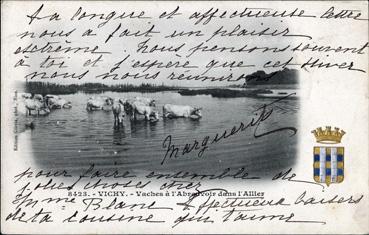 La longue et affectueuse lettre
nous a fait un plaisir
extrême Nous pensons souvent
à toi et j'espère que cet hiver
nous nous réunirons
Marguerite
8423. - VICHY. - Vaches à l'Abreuvoir dans l'Allier
pour faire ensemble de
jolies choses chez
Mme Blanc Affectueux baisers
de ta cousine qui t'aime